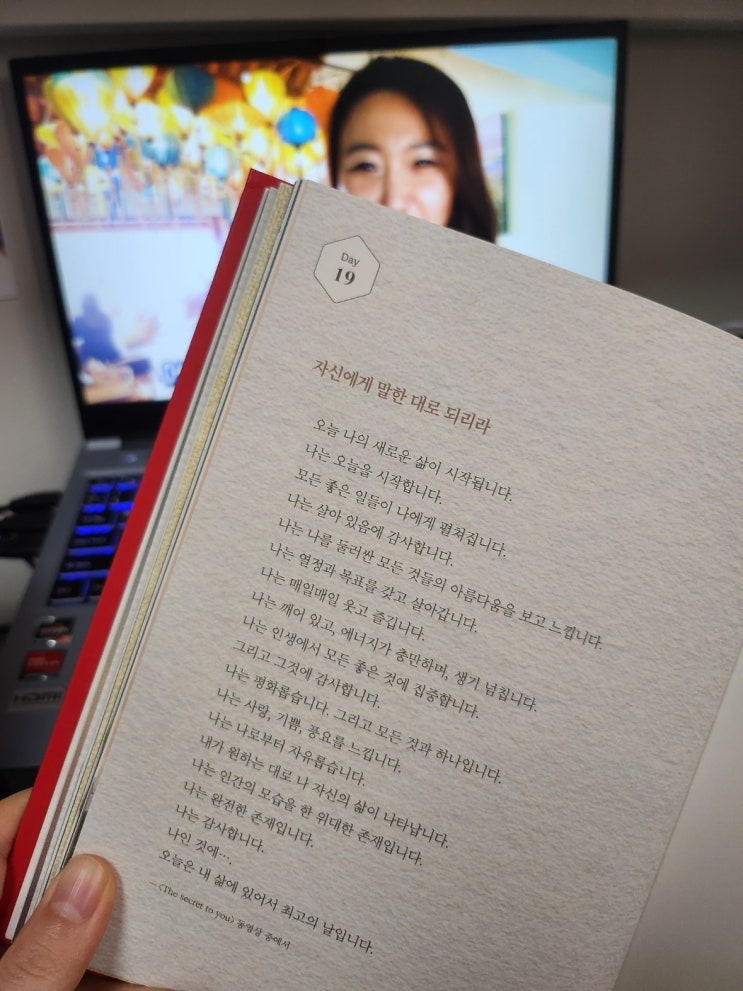 Day
19
자신에게 말한 대로 되리라
오늘 나의 새로운 삶이 시작됩니다.
나는 오늘을 시작합니다.
모든 좋은 일들이 나에게 펼쳐집니다.
나는 살아 있음에 감사합니다.
나는 나를 둘러싼 모든 것들의 아름다움을 보고 느낍니다.
나는 열정과 목표를 갖고 살아갑니다.
나는 매일매일 웃고 즐깁니다.
나는 깨어 있고, 에너지가 충만하며, 생기 넘칩니다.
나는 인생에서 모든 좋은 것에 집중합니다.
그리고 그것에 감사합니다.
나는 평화롭습니다. 그리고 모든 것과 하나입니다.
나는 사랑, 기쁨, 풍요를 느낍니다.
나는 나로부터 자유롭습니다.
내가 원하는 대로 나 자신의 삶이 나타납니다.
나는 인간의 모습을 한 위대한 존재입니다.
나는 완전한 존재입니다.
나는 감사합니다.
나인 것에….
오늘은 내 삶에 있어서 최고의 날입니다.
–〈The secret to you〉 동영상 중에서
HDMI